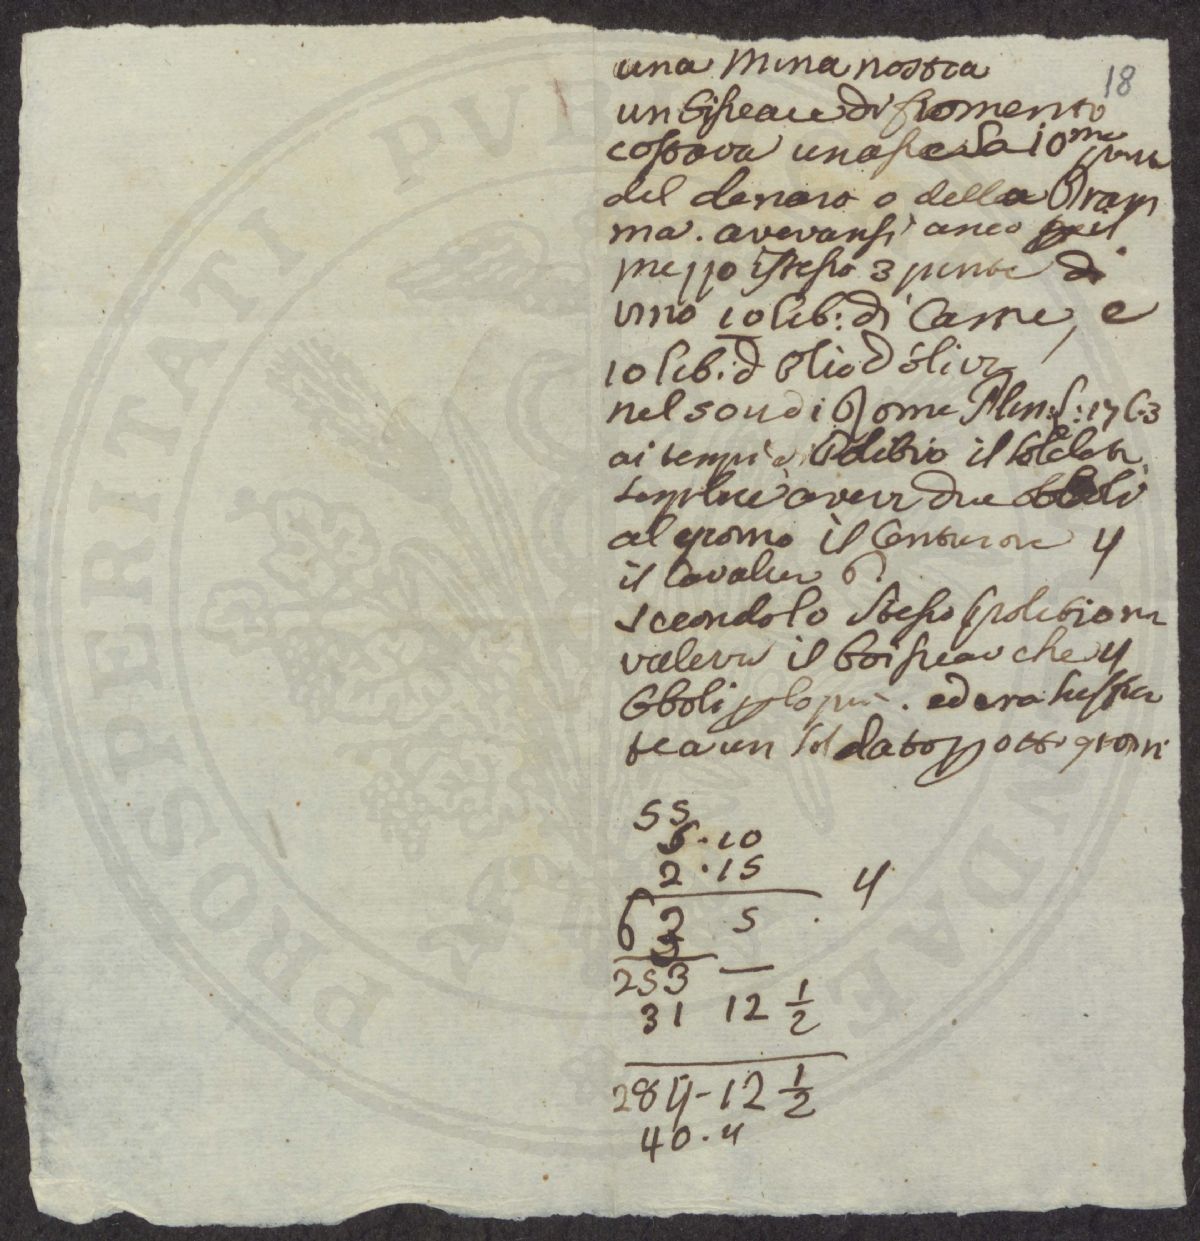 18
una Mina nostra
un di fromento
costava una 10me parte
del denaro o della Dram
ma. avevansi anco per il
prezzo istesso 3 pinte di
vino 10 lib: di Carne, e
10 lib: d'Olio d'olive
nel 500 di Rome 1763
ai tempi di Polibio il soldato
semplice avea due Oboli
al giorno il Centurione 4
il Cavalier 6.
secondo lo stesso Polibio non
valeva il Boisseau che 4
Oboli per lo più. ed era
a un soldato per otto giorni
55
5 . 10
2 . 15
4
62 5 .
5
253 —
31 12 1/2
284 - 12 1/2
40 . 4
PROSPERITATI PVBLICAE